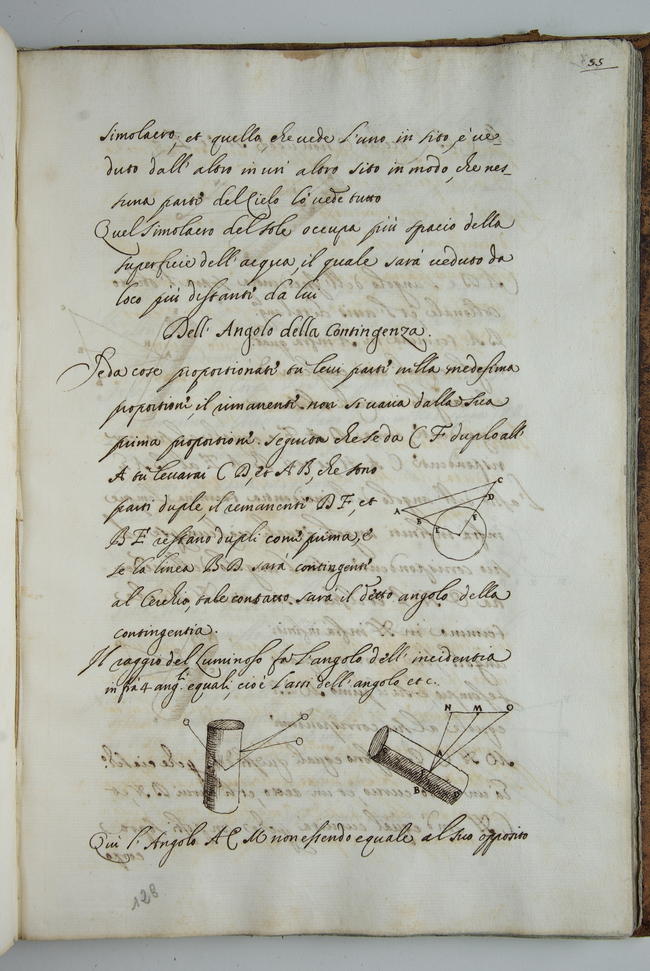 55
simolacro, et quello, che vede l'uno in sito, é ve-
duto dall' altro in un' altro sito in modo, che nes-
suna parte del Cielo lo vede tutto
Quel simolacro del sole occupa più spacio della
superficie dell' acqua, il quale sará veduto da
loco più distante da lui
Dell' Angolo della Contingenza.
Se da cose proportionate tu levi parte nella medesima
proportione, il rimanente non si varia dalla sua
prima proportione. seguita che se da C F duplo all'
A tu levarai C D, et A B, che sono
parti duple, il remanente D F et
B E restano dupli come prima, é
se la linea B D sará contingente
al Cerchio, tale contatto sará il detto angolo della
contingentia.
A B C D E F
Il raggio del Luminoso fa l'angolo dell' incidentia
infra 4 ang.li equali, cioé l'assi dell' angolo etc.
N M O
A
B C D
Qui l' Angolo A C M non essendo equale al suo opposito
128